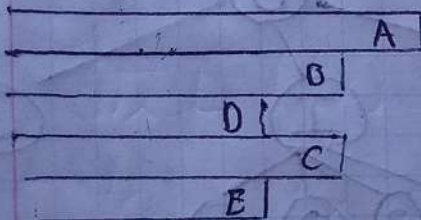 A
B
D
C
E